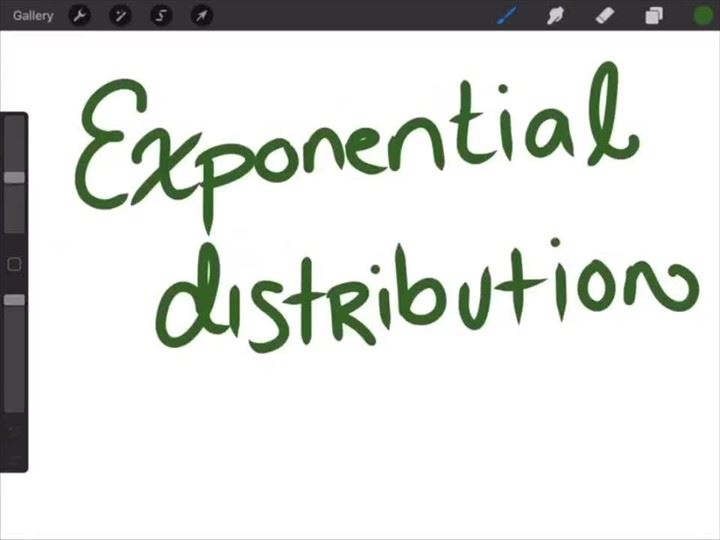 Gallery
Exponential
distribution